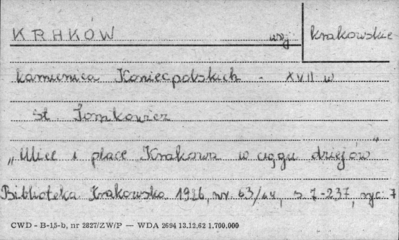 KRAKÓW woj krakowskie
kamienica Koniecpolskich - XVII w
St. Tomkowicz
„Ulice i place Krakowa w ciągu dziejów"
Biblioteka Krakowska 1926, nr 63/64, s 7-237, ryc 7
CWD - B-15-b, nr 2827/ZW/P — WDA 2604 13.12.62 1.700.000